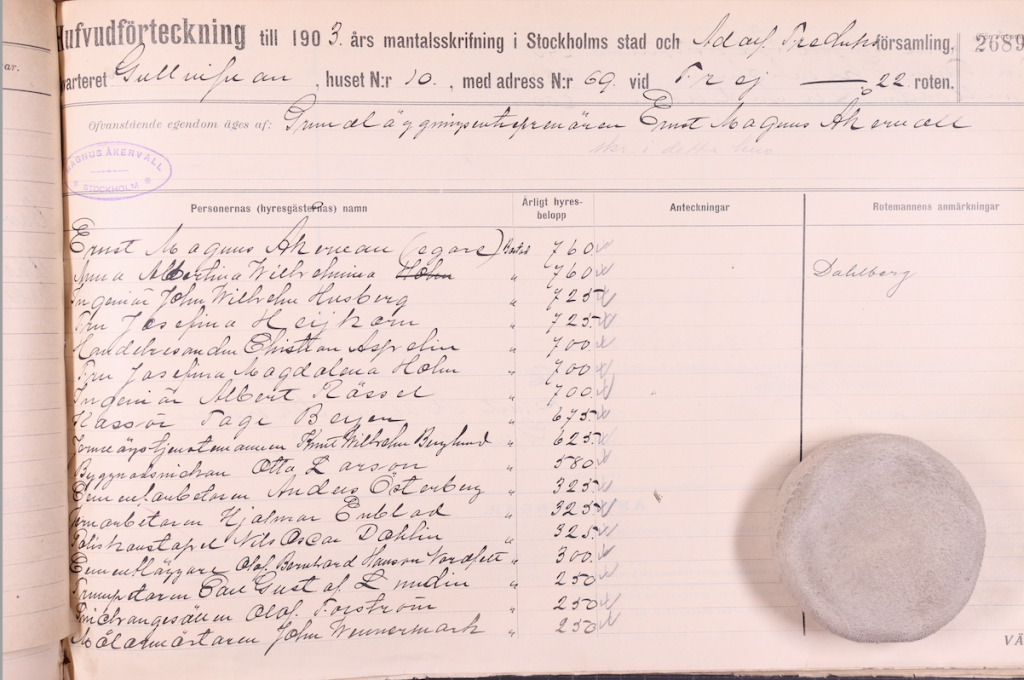 ar.
Hufvudförteckning till 1903. års mantalsskrifning i Stockholms stad och Adolf Fredriks församling, 2689
arteret Gullvifvan, huset N:r 10., med adress N:r 69. vid Frej — 22 roten.
Ofvanstående egendom äges af: Grundläggningsentreprenören Ernst Magnus Åkervall
skr. i detta hus
MAGNUS ÅKERVALL
STOCKHOLM
Personernas (hyresgästernas) namn Årligt hyres-belopp Anteckningar Rotemannens anmärkningar
Ernst Magnus Åkervall (egare) 760
Anna Albertina Wilhelmina Holm " 760 Dahlberg
Ingeniör John Wilhelm Husberg " 725
Fru Josefina Heijkorn " 725
Handelsresanden Christian Asplin " 700
Fru Josefina Magdalena Holm " 700
Ingeniör Albert Rössel " 700
Kassör Tage Beijer " 675
Jernvägstjenstemannen Knut Wilhelm Berglund " 625
Byggnadssnickan Otto Larson " 580
Cementarbetaren Anders Österberg " 325
Jernarbetaren Hjalmar Enblad " 325
Poliskonstapel Nils Oscar Dahlin " 325
Cementläggare Olof Bernhard Hanson Nordfelt " 300
Trumpetaren Carl Gustaf Lundin " 250
Olof Forström " 250
Målarmästaren John Wennermark " 250
VÄ